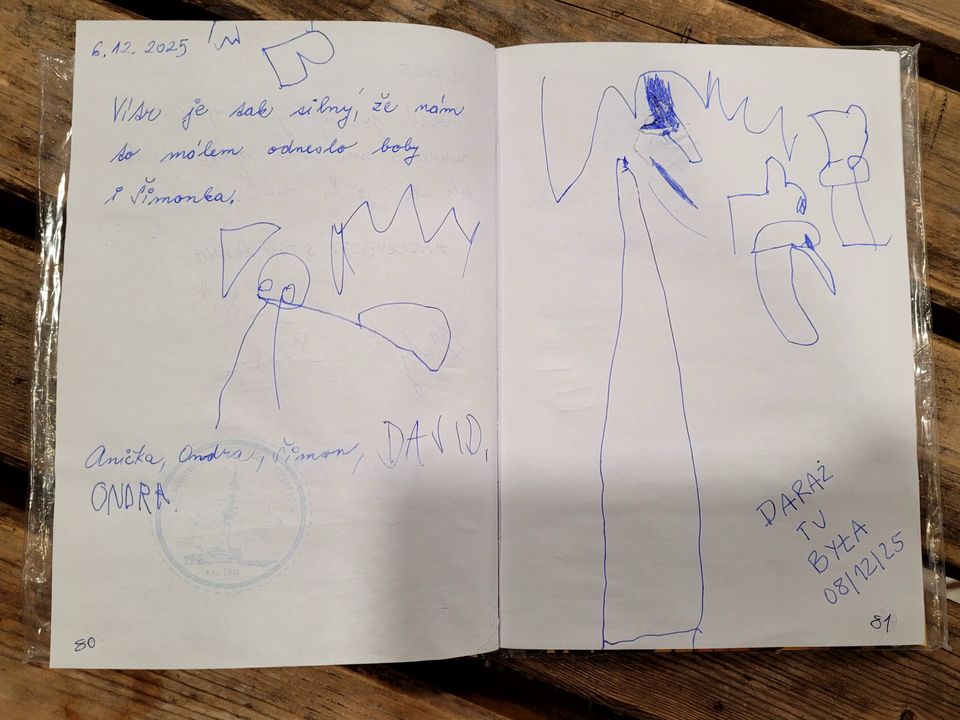 6.12.2025
Vítr je tak silný, že nám
to málem odneslo boby
i Šimonka.
Anička, Ondra, Šimon, DAVID,
ONDRA.
80
DARAŻ
TU
BYŁA
08/12/25
81